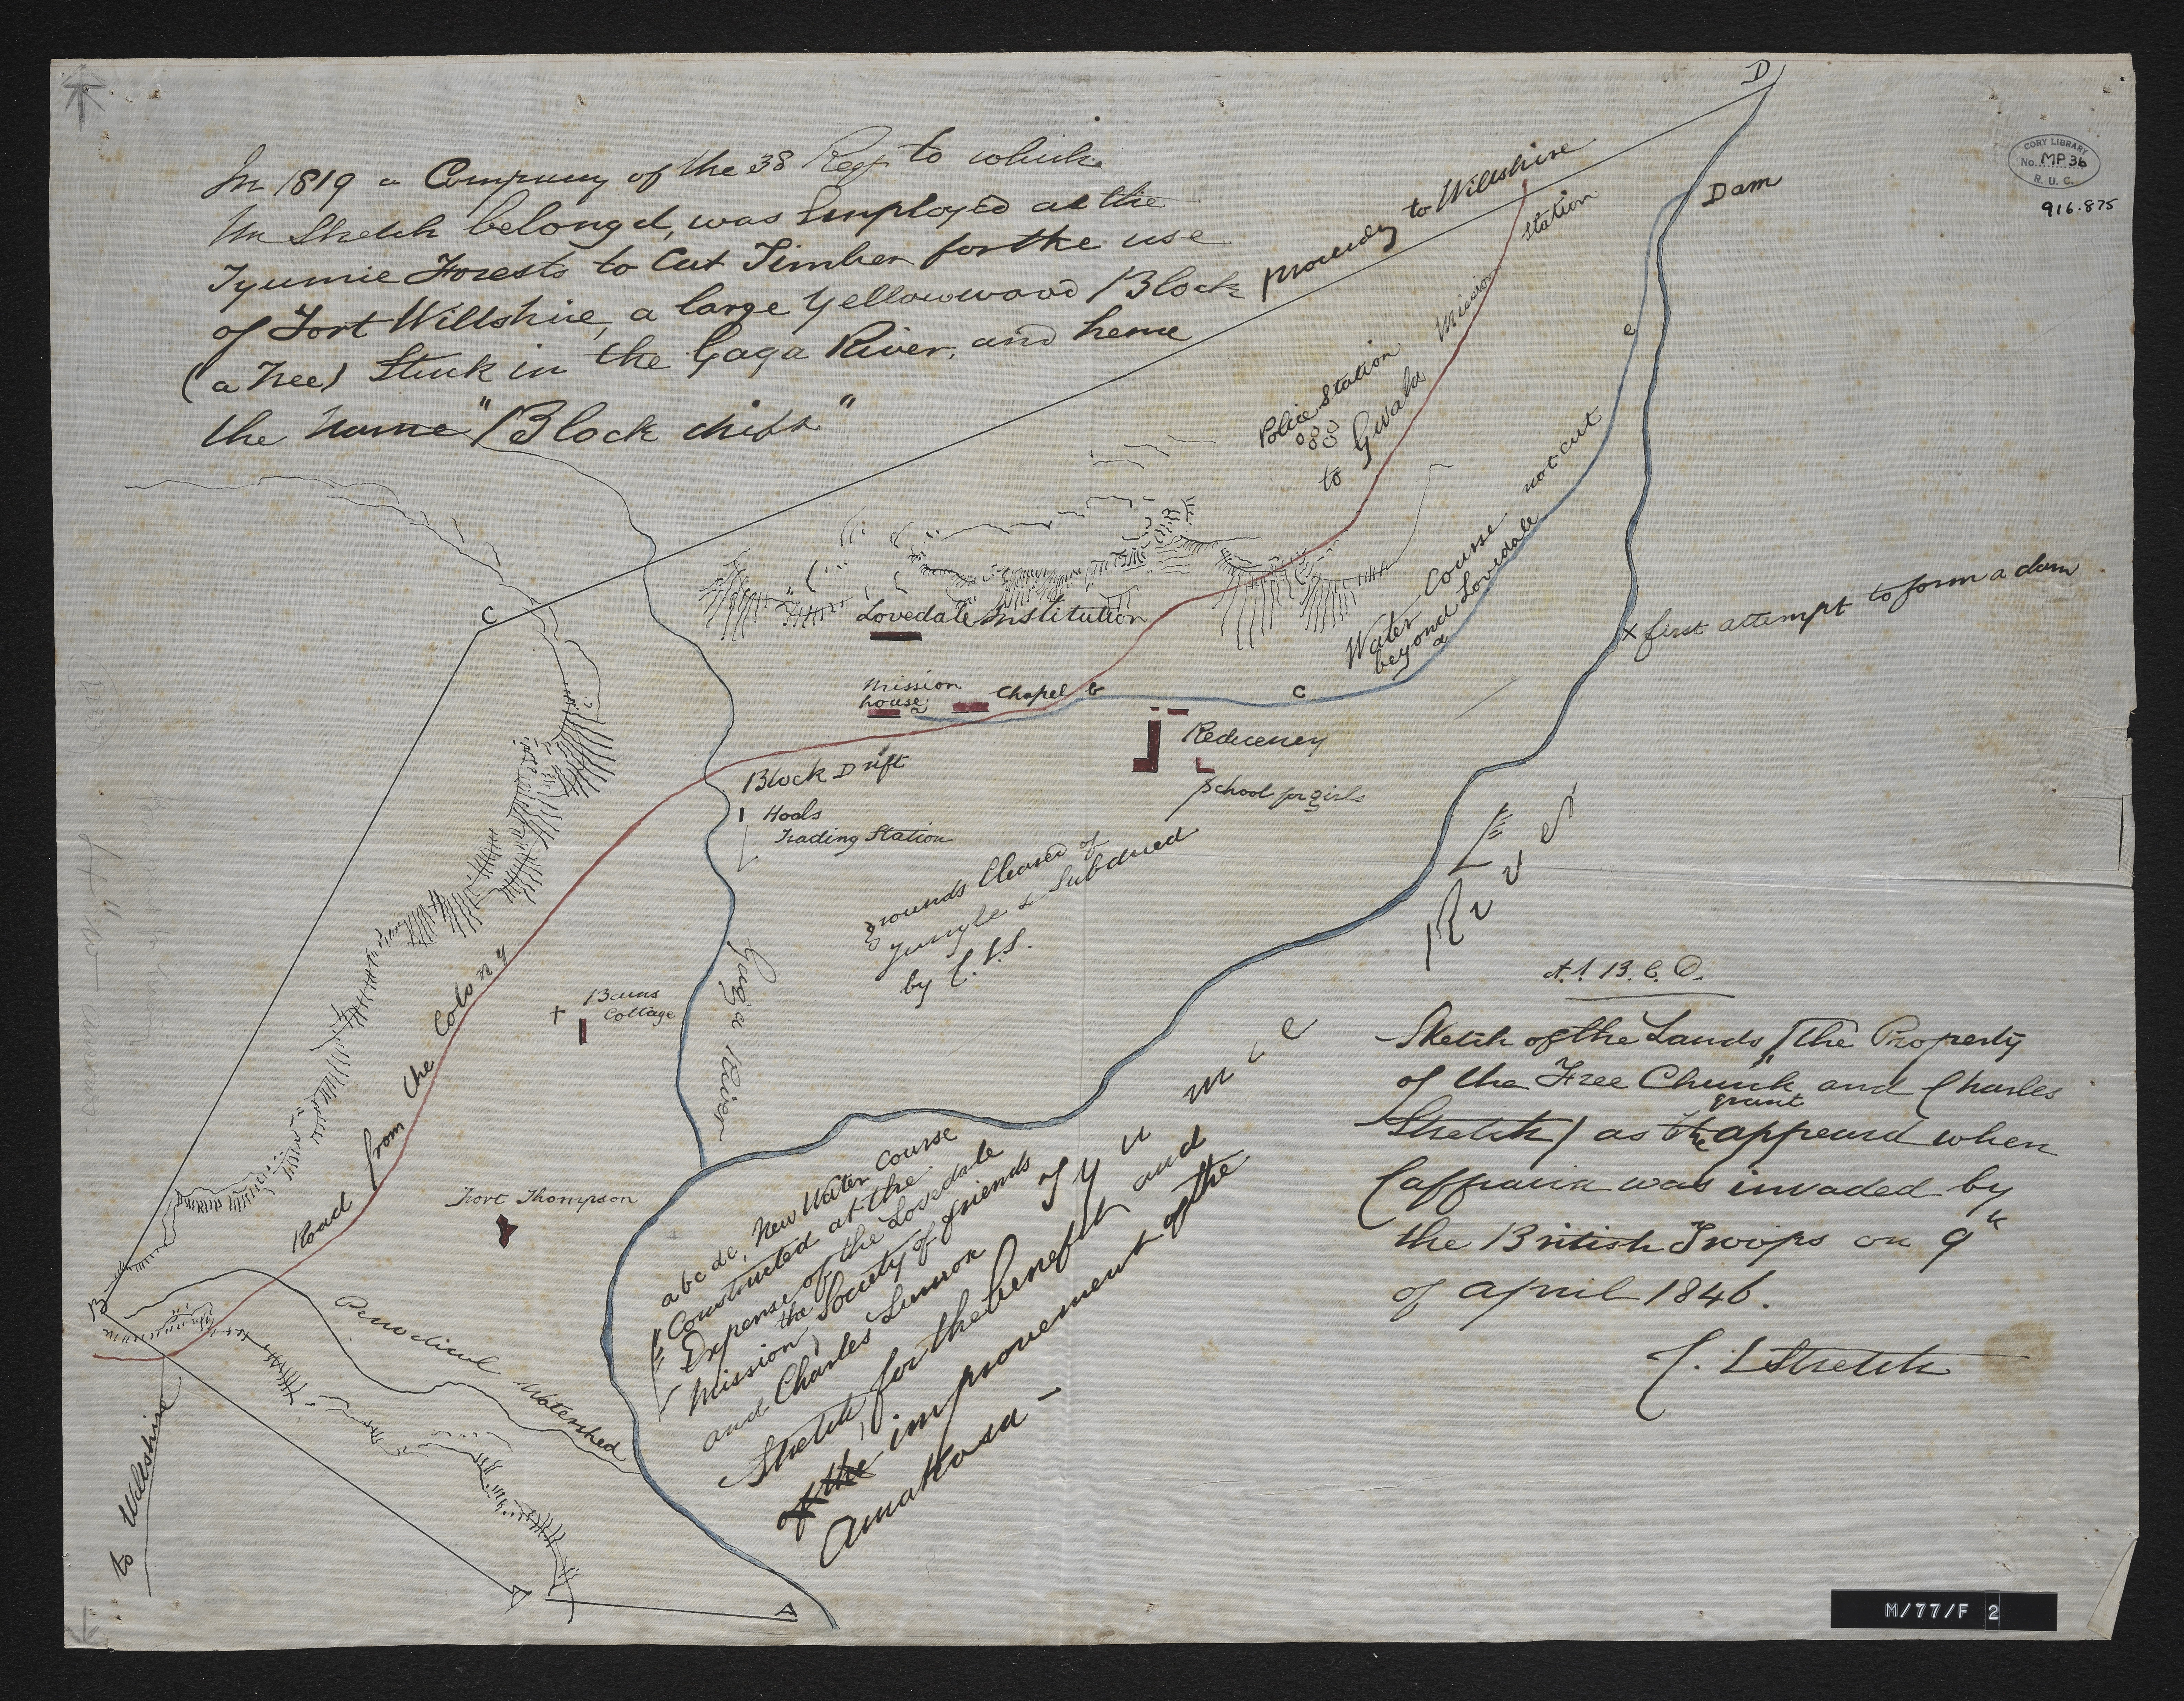 D
CORY LIBRARY
No. MP 36
R. U. C.
916.875
In 1819 a Company of the 38 Regt to which
Mr Stretch belongd, was Employed at the
Tyumie Forests to Cut Timber for the use
of Fort Willshire, a large Yellowwood Block proceedg to Willshire
(a Tree) Stuck in the Gaga River, and hence
the name "Block drift"
Dam
Police Station
to Gwala Mission Station
e
Water Course not cut
beyond Lovedale
d
x first attempt to form a dam
C
Lovedale Institution
Mission
house
a
Chapel
b
c
Block Drift
Residency
School for girls
Hoals
Trading Station
grounds Cleared of
Jungle & Subdued
by C. L. S.
Gaga River
Burns
Cottage
+
Road from the Colony
Fort Thompson
Tyumie River
B
Periodical Watershed
to Willshire
A
A
a b c d e, New Water Course
Constructed at the
Expense of the Lovedale
Mission, the Society of friends
and Charles Lennox
Stretch, for the benefit and
of the improvement of the
AmaKosa –
A. A. B. C. D.
Sketch of the Lands (the Property
of the Free Church and Charles
Stretch) as the grant appeard when
Caffraria was invaded by
the British Troops on 9th
of april 1846.
C. L Stretch
M/77/F 2